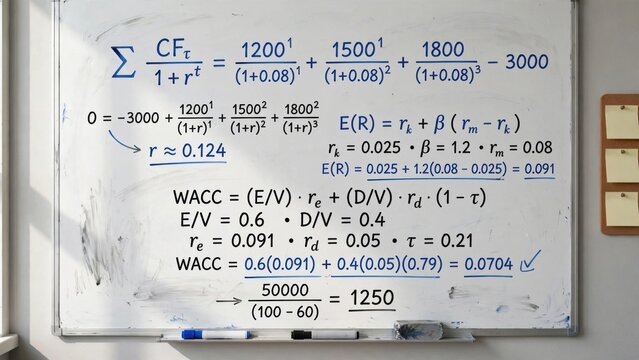 ∑ CF_τ / 1+r^t = 1200¹/(1+0.08)¹ + 1500¹/(1+0.08)² + 1800/(1+0.08)³ − 3000
0 = −3000 + 1200¹/(1+r)¹ + 1500²/(1+r)² + 1800²/(1+r)³
r ≈ 0.124
E(R) = r_k + β ( r_m − r_k )
r_k = 0.025 • β = 1.2 • r_m = 0.08
E(R) = 0.025 + 1.2(0.08 − 0.025) = 0.091
WACC = (E/V) · r_e + (D/V) · r_d · (1 − τ)
E/V = 0.6 • D/V = 0.4
r_e = 0.091 • r_d = 0.05 • τ = 0.21
WACC = 0.6(0.091) + 0.4(0.05)(0.79) = 0.0704 ✓
→ 50000/(100 − 60) = 1250